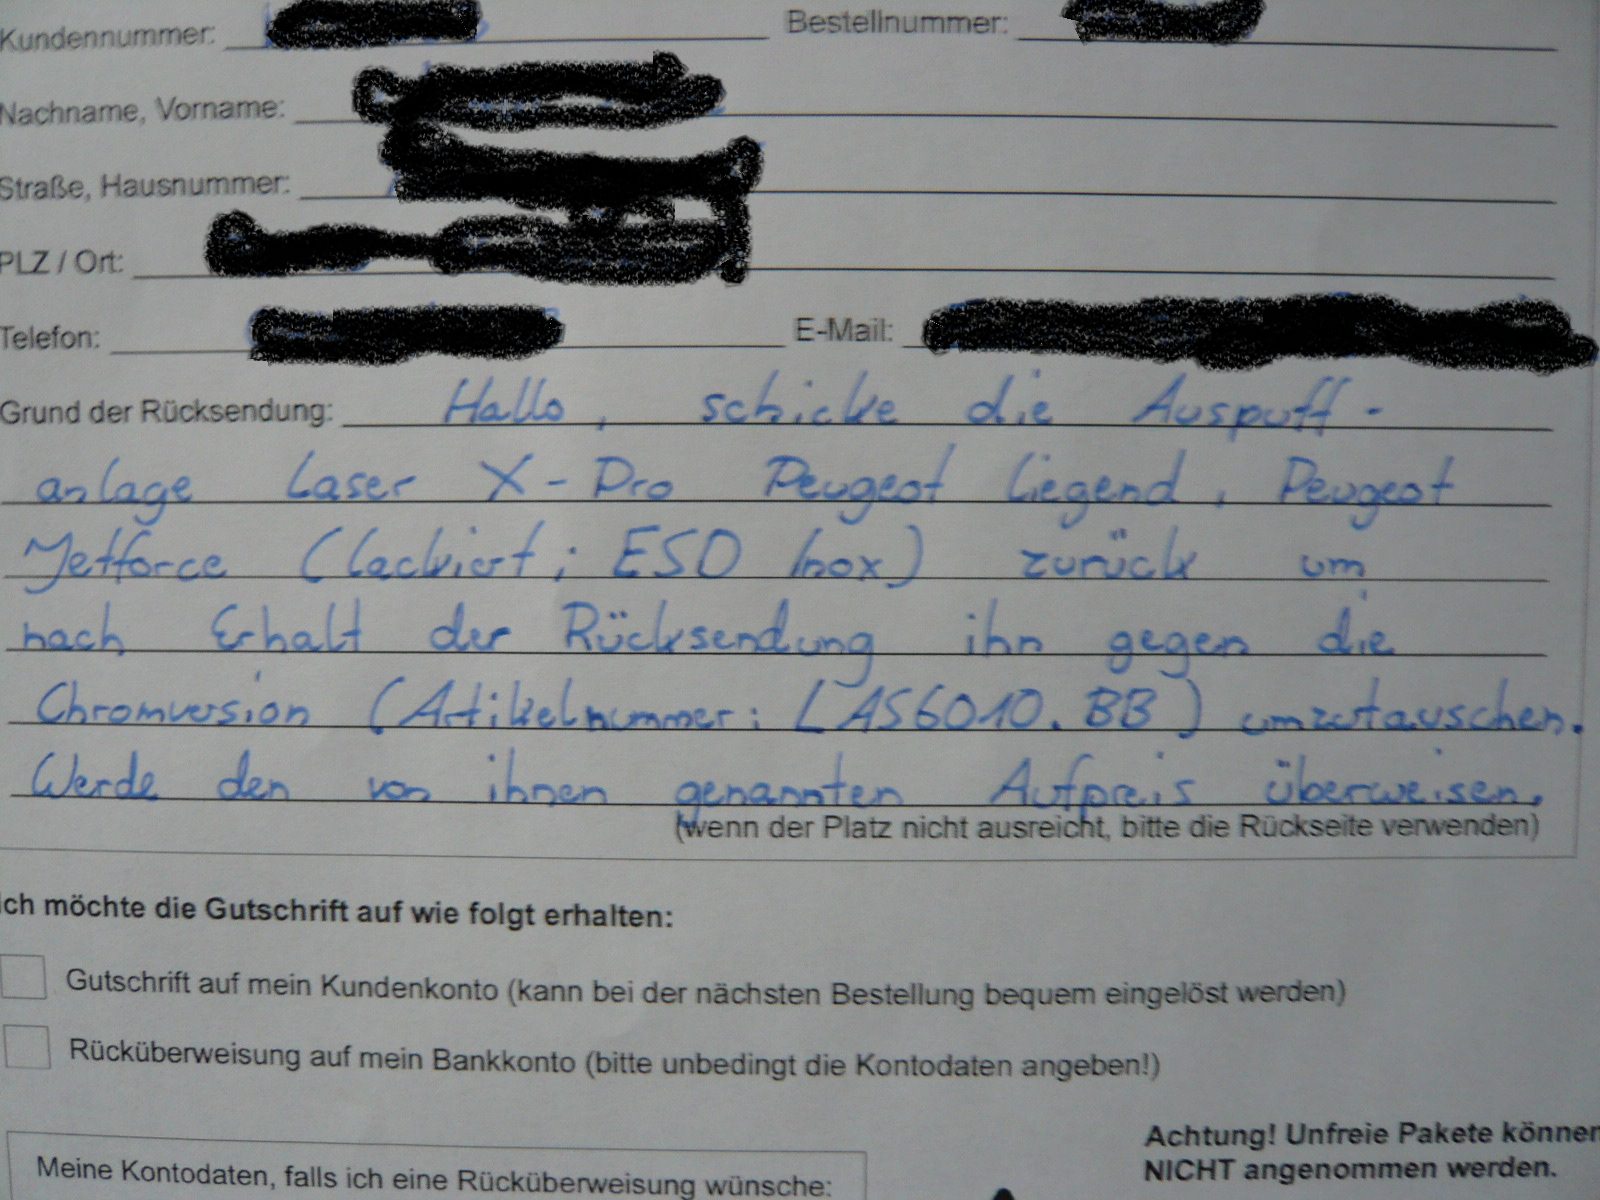 Kundennummer: Bestellnummer:
Nachname, Vorname:
Straße, Hausnummer:
PLZ / Ort:
Telefon: E-Mail:
Grund der Rücksendung: Hallo, schicke die Auspuff-
anlage Laser X-Pro Peugeot liegend, Peugeot
Jetforce (lackiert; ESD Inox) zurück um
nach Erhalt der Rücksendung ihn gegen die
Chromversion (Artikelnummer: LAS6010.BB) umzutauschen.
Werde den von ihnen genannten Aufpreis überweisen.
(wenn der Platz nicht ausreicht, bitte die Rückseite verwenden)
Ich möchte die Gutschrift auf wie folgt erhalten:
Gutschrift auf mein Kundenkonto (kann bei der nächsten Bestellung bequem eingelöst werden)
Rücküberweisung auf mein Bankkonto (bitte unbedingt die Kontodaten angeben!)
Achtung! Unfreie Pakete können
NICHT angenommen werden.
Meine Kontodaten, falls ich eine Rücküberweisung wünsche: